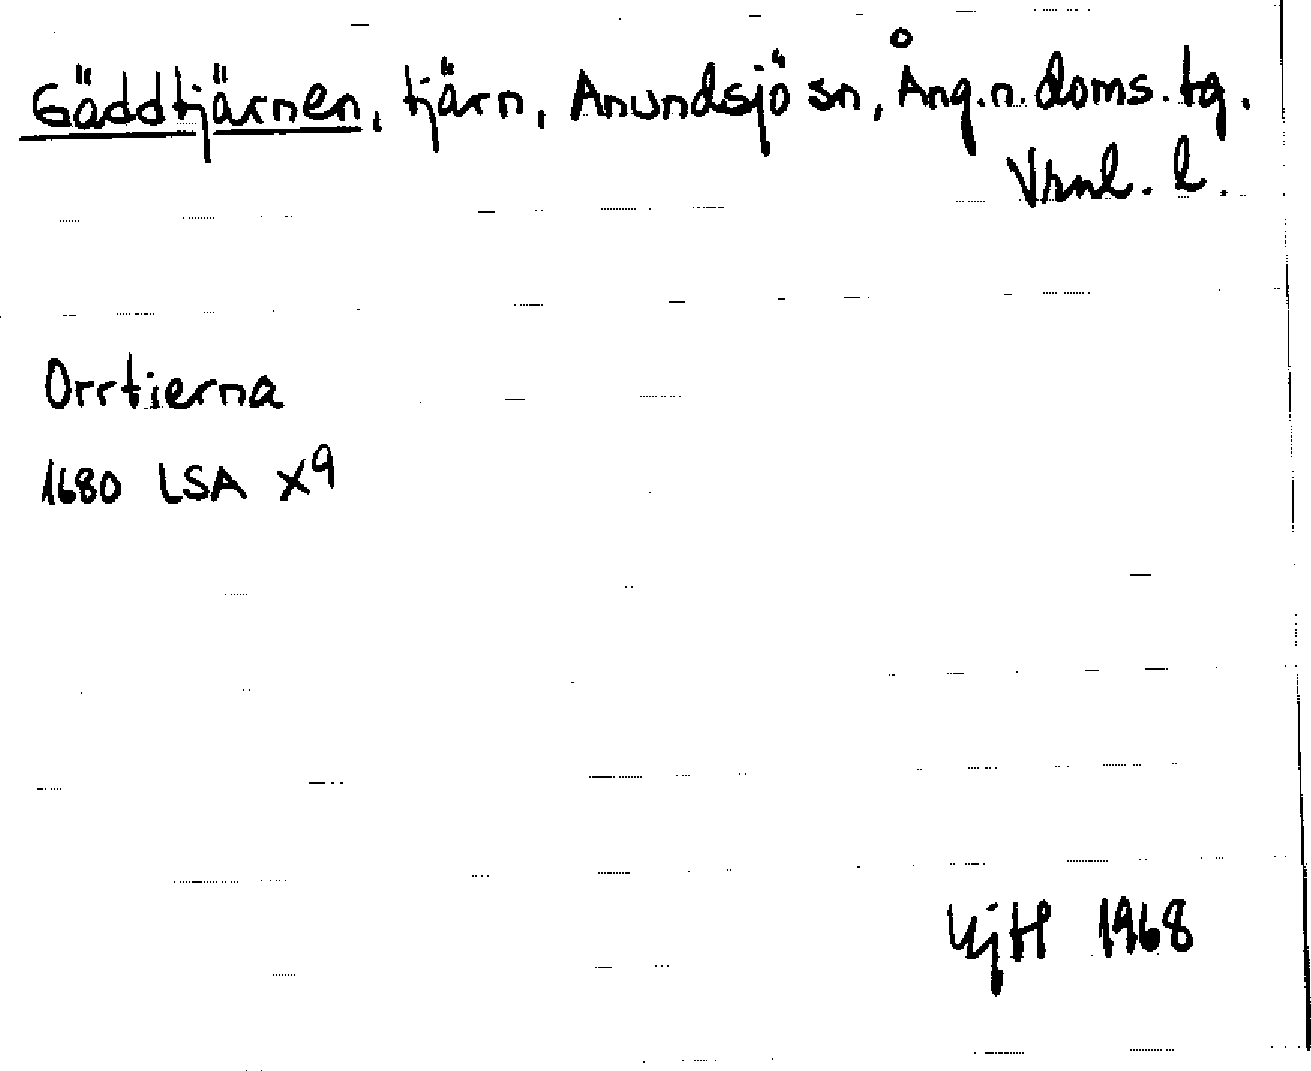 Gäddtjärnen, tjärn, Anundsjö sn, Ång.n. doms.tg.
Vrnl. l.
Orrtierna
1680 LSA X9
1968